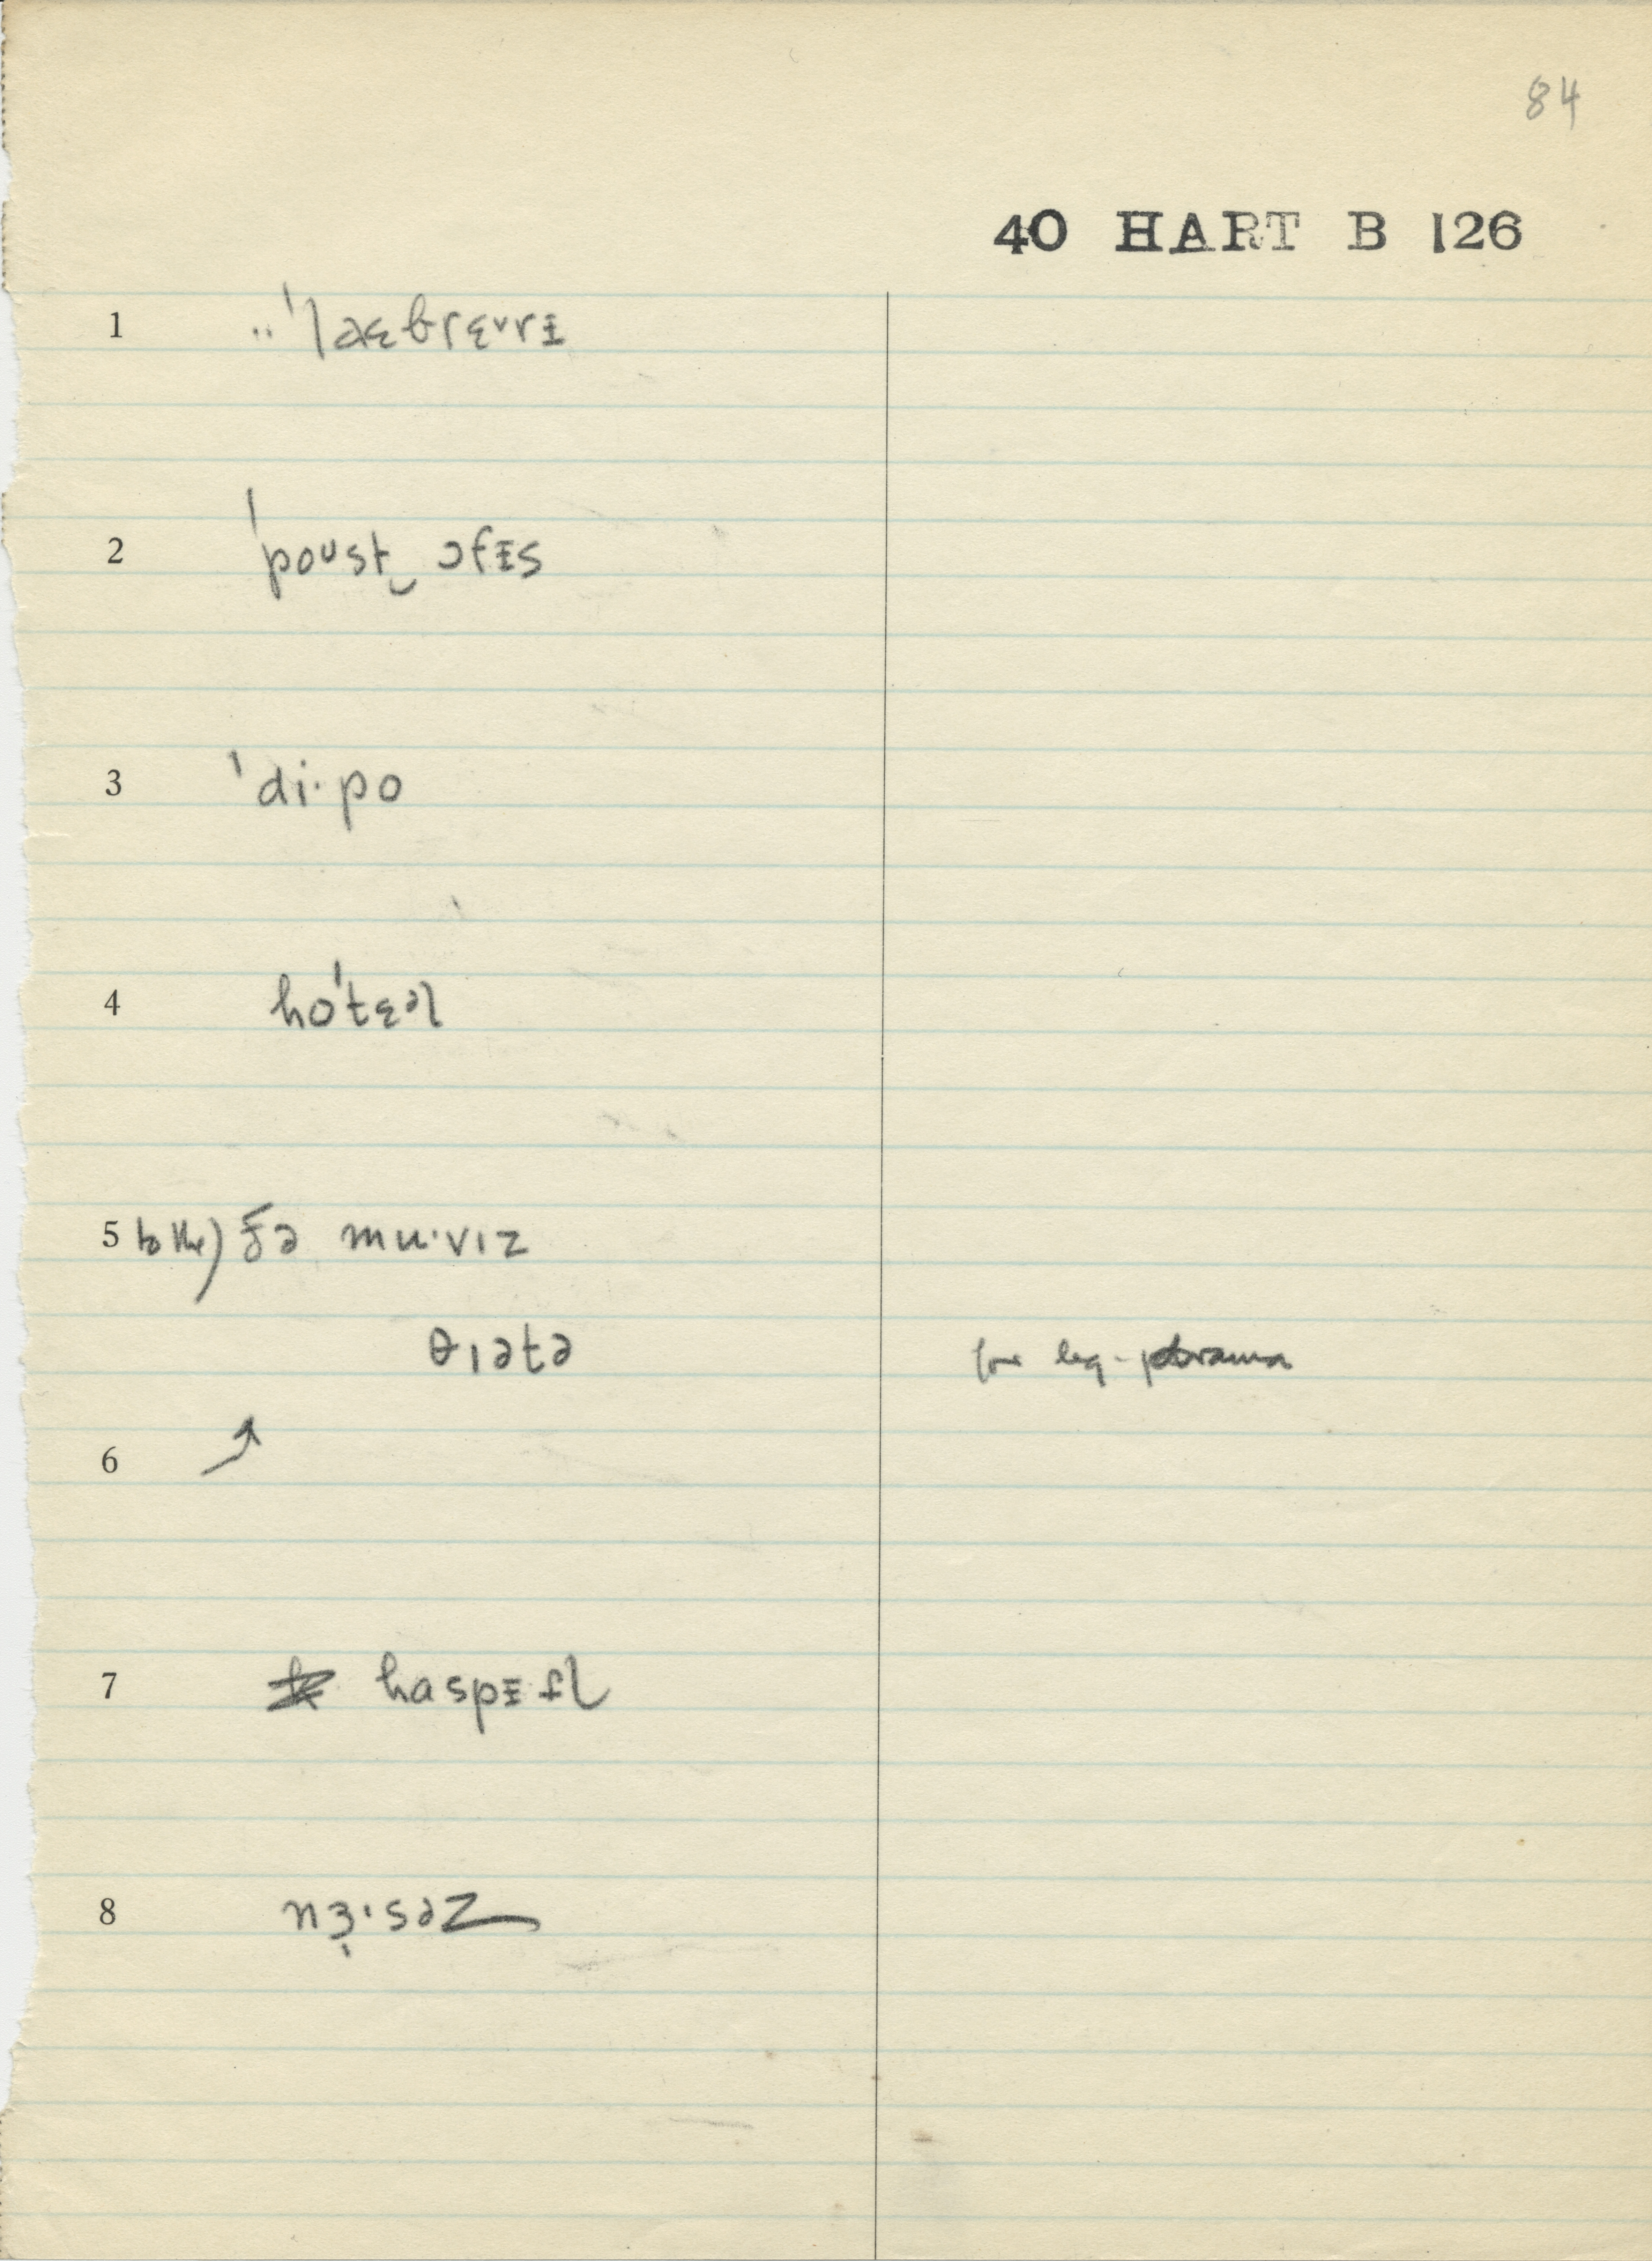 84
40 HART B 126
1 ¨ˈlaɛbrɛvrᵻ
2 ˈpoᴜst‿ɔfᵻs
3 ˈdi·po
4 hoˈtɛəl
5 to the) ðə mu·vɪz
θɪətə for leg. drama
6 ↗
7 haspᵻtl
8 nɜ·səz